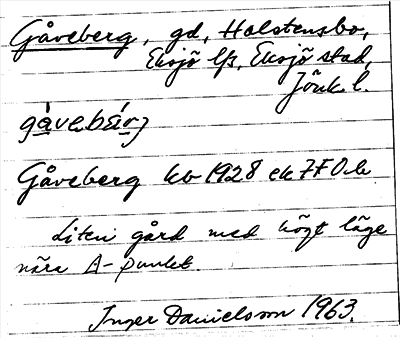 Gåveberg, gd, Holstensbo,
Eksjö lfs, Eksjö stad,
Jönk. l.
gåvebärj
Gåveberg kb 1928 ek 7F0
Liten gård med högt läge
nära A-punkt.
Inger Danielsson 1963.